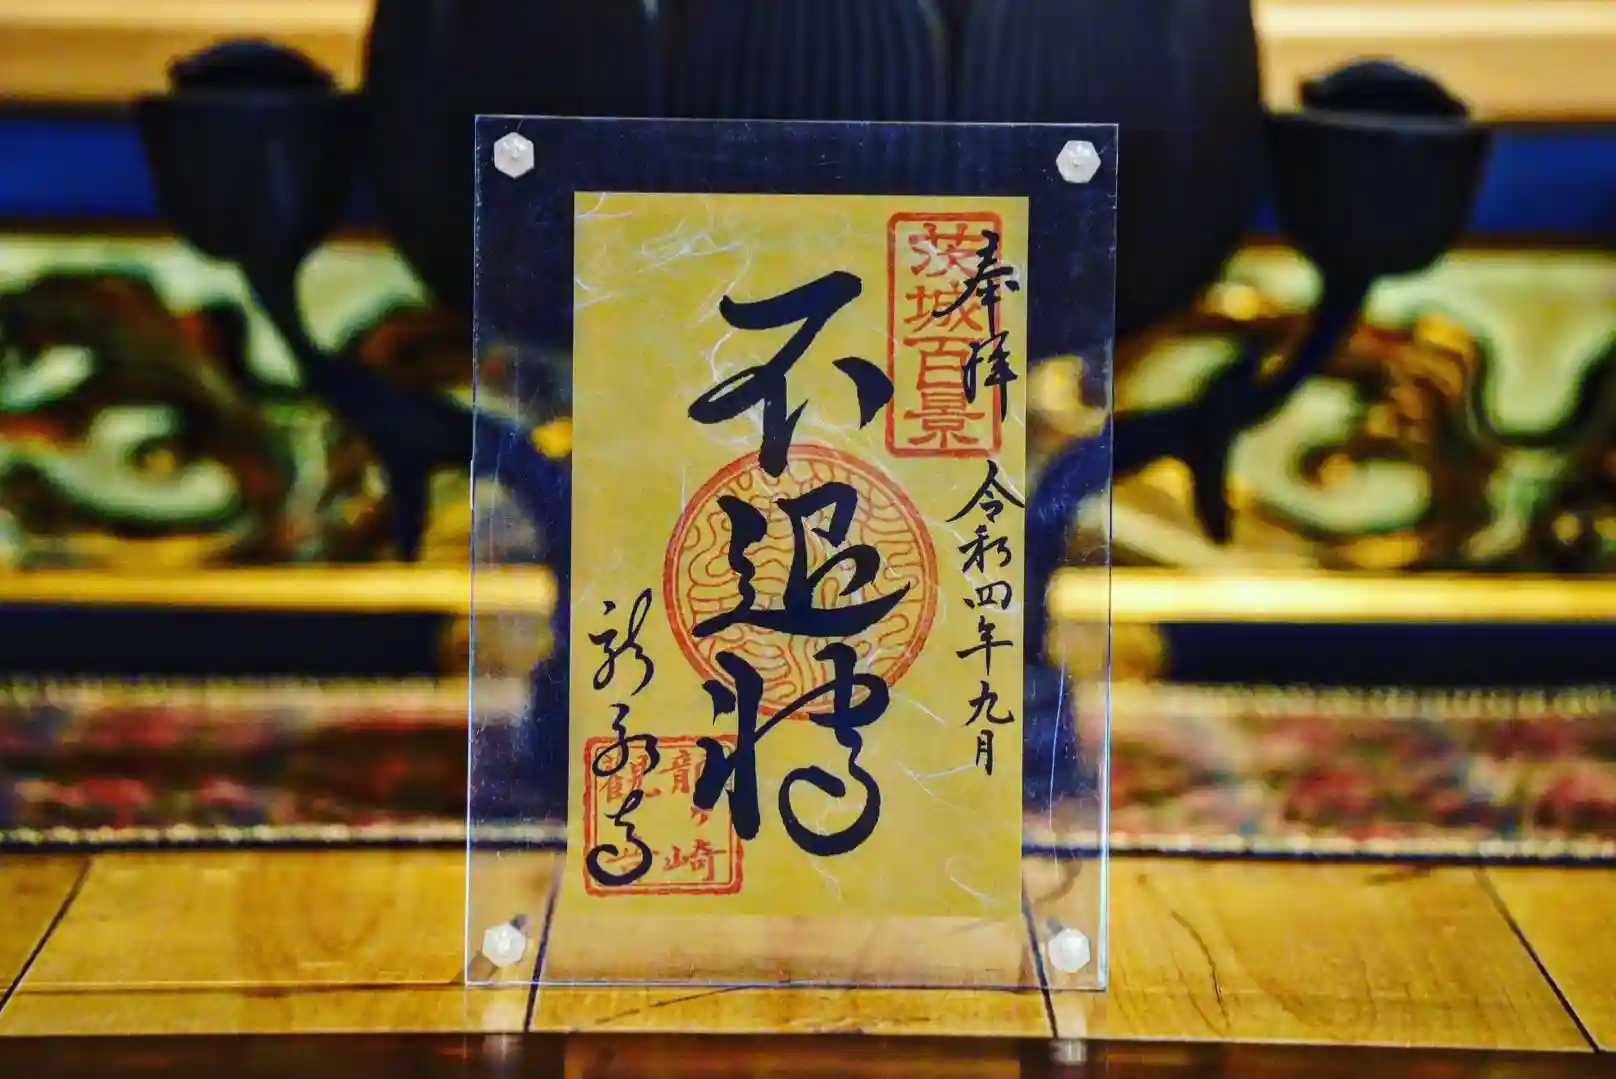 奉拝
茨城百景
令和四年九月
不退轉
龍ヶ崎
観